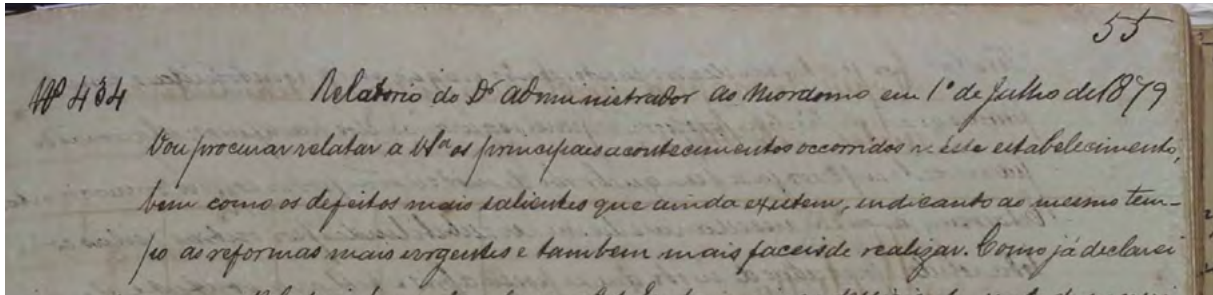 55
Nº 434 Relatorio do Dr Administrador ao Mordomo em 1º de Julho de 1879
Vou procurar relatar a V. Sª os principaes acontecimentos occorridos n'este estabelecimento,
bem como os defeitos mais salientes que ainda existem, indicanto ao mesmo tem-
po as reformas mais urgentes e tambem mais faceis de realizar. Como já declarei